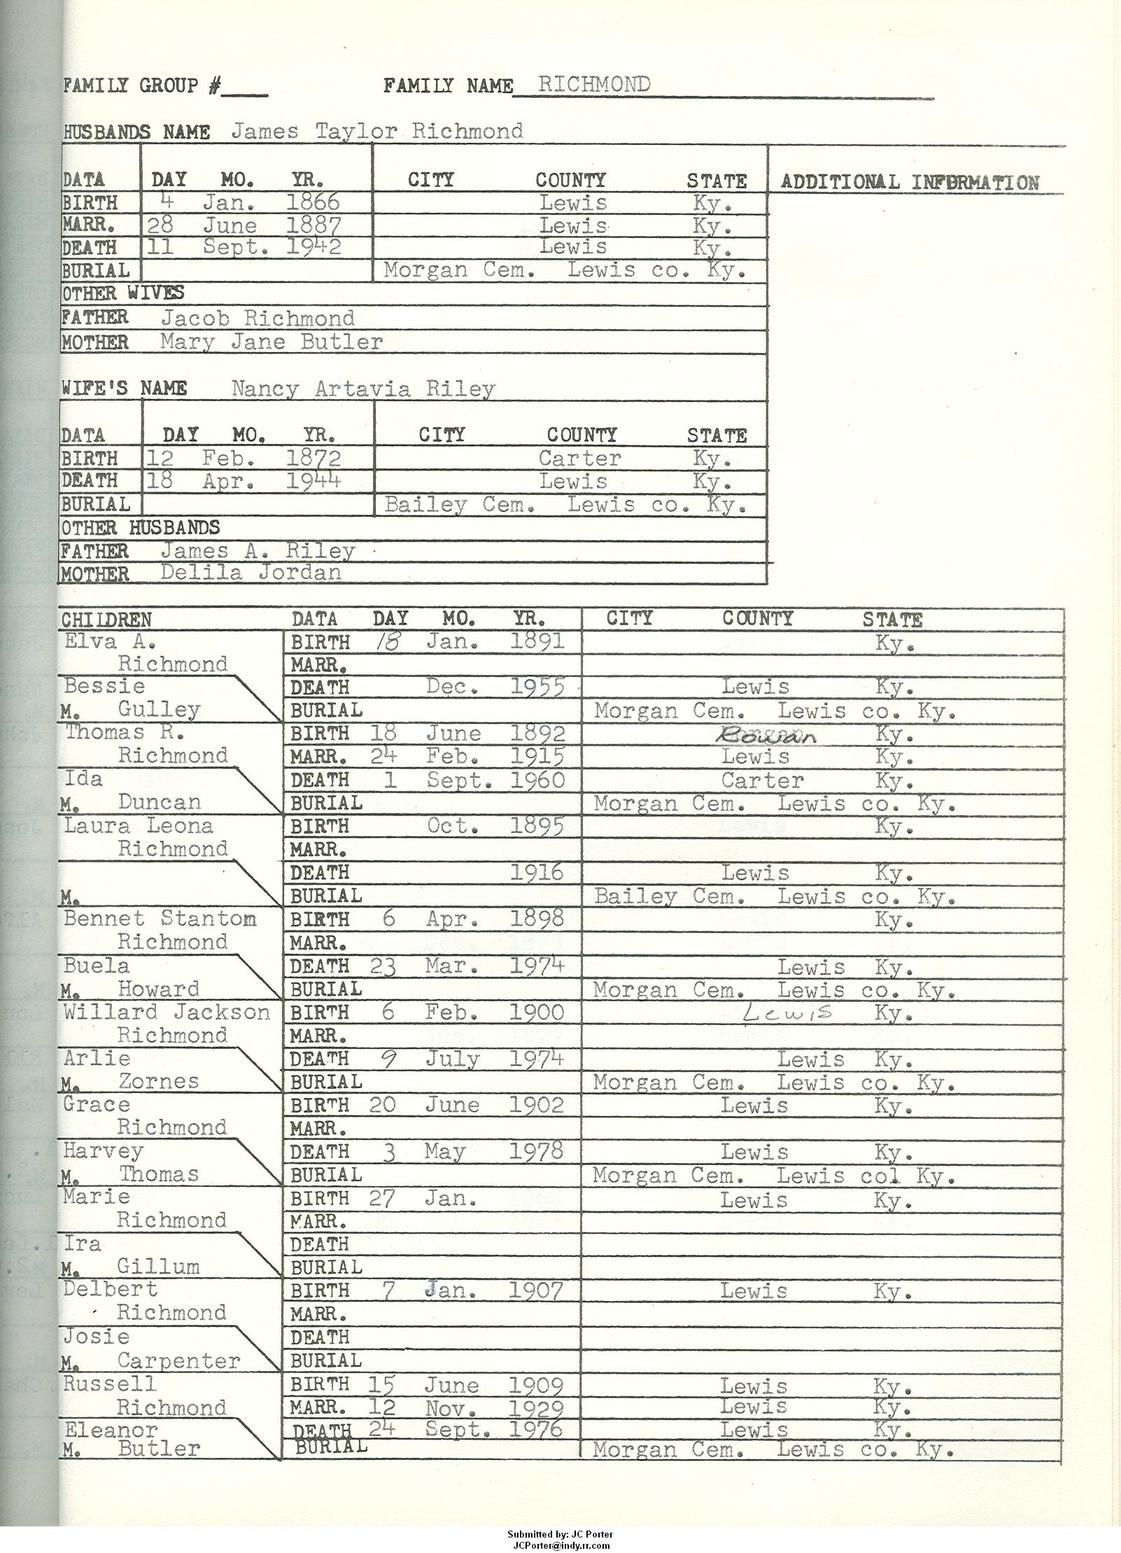 FAMILY GROUP #____ FAMILY NAME RICHMOND
HUSBANDS NAME James Taylor Richmond
DATA DAY MO. YR. CITY COUNTY STATE ADDITIONAL INFORMATION
BIRTH 4 Jan. 1866 Lewis Ky.
MARR. 28 June 1887 Lewis Ky.
DEATH 11 Sept. 1942 Lewis Ky.
BURIAL Morgan Cem. Lewis co. Ky.
OTHER WIVES
FATHER Jacob Richmond
MOTHER Mary Jane Butler
WIFE'S NAME Nancy Artavia Riley
DATA DAY MO. YR. CITY COUNTY STATE
BIRTH 12 Feb. 1872 Carter Ky.
DEATH 18 Apr. 1944 Lewis Ky.
BURIAL Bailey Cem. Lewis co. Ky.
OTHER HUSBANDS
FATHER James A. Riley
MOTHER Delila Jordan
CHILDREN DATA DAY MO. YR. CITY COUNTY STATE
Elva A. BIRTH 18 Jan. 1891 Ky.
Richmond MARR.
Bessie DEATH Dec. 1955 Lewis Ky.
M. Gulley BURIAL Morgan Cem. Lewis co. Ky.
Thomas R. BIRTH 18 June 1892 Rowan Ky.
Richmond MARR. 24 Feb. 1915 Lewis Ky.
Ida DEATH 1 Sept. 1960 Carter Ky.
M. Duncan BURIAL Morgan Cem. Lewis co. Ky.
Laura Leona BIRTH Oct. 1895 Ky.
Richmond MARR.
DEATH 1916 Lewis Ky.
M. BURIAL Bailey Cem. Lewis co. Ky.
Bennet Stantom BIRTH 6 Apr. 1898 Ky.
Richmond MARR.
Buela DEATH 23 Mar. 1974 Lewis Ky.
M. Howard BURIAL Morgan Cem. Lewis co. Ky.
Willard Jackson BIRTH 6 Feb. 1900 Lewis Ky.
Richmond MARR.
Arlie DEATH 9 July 1974 Lewis Ky.
M. Zornes BURIAL Morgan Cem. Lewis co. Ky.
Grace BIRTH 20 June 1902 Lewis Ky.
Richmond MARR.
Harvey DEATH 3 May 1978 Lewis Ky.
M. Thomas BURIAL Morgan Cem. Lewis col Ky.
Marie BIRTH 27 Jan. Lewis Ky.
Richmond MARR.
Ira DEATH
M. Gillum BURIAL
Delbert BIRTH 7 Jan. 1907 Lewis Ky.
Richmond MARR.
Josie DEATH
M. Carpenter BURIAL
Russell BIRTH 15 June 1909 Lewis Ky.
Richmond MARR. 12 Nov. 1929 Lewis Ky.
Eleanor DEATH 24 Sept. 1976 Lewis Ky.
M. Butler BURIAL Morgan Cem. Lewis co. Ky.
Submitted by: JC Porter
JCPorter@indy.rr.com